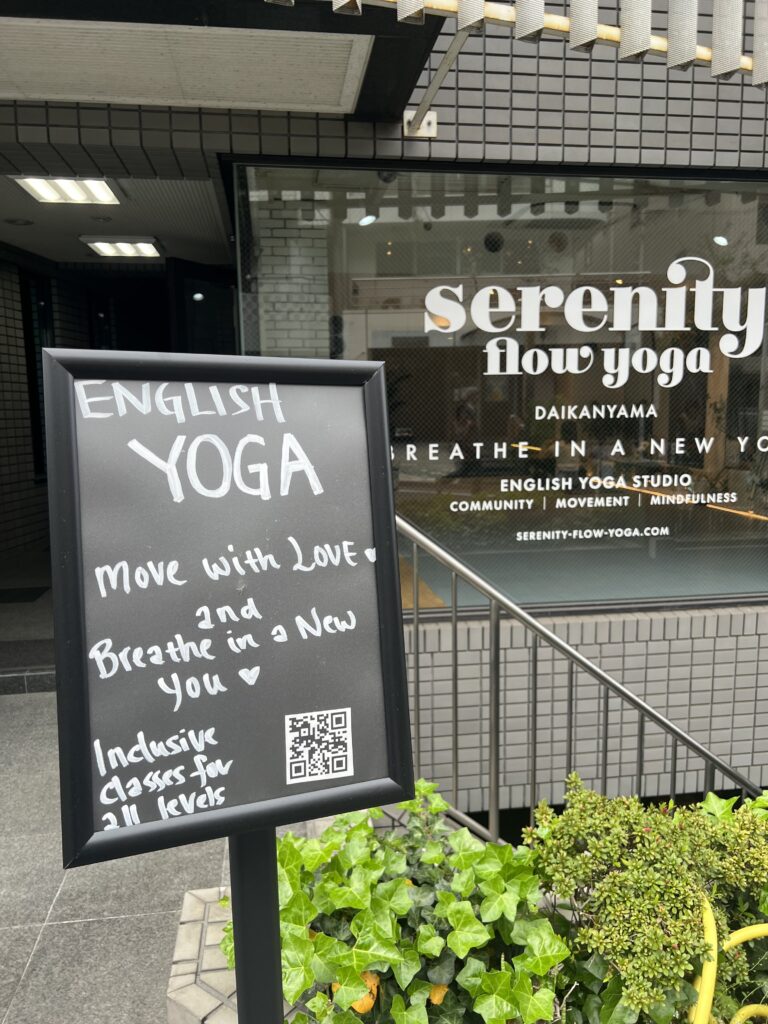 ENGLISH
YOGA
Move with LOVE
and
Breathe in a New
you ♥
Inclusive
classes for
all levels
serenity
flow yoga
DAIKANYAMA
BREATHE IN A NEW YO
ENGLISH YOGA STUDIO
COMMUNITY | MOVEMENT | MINDFULNESS
SERENITY-FLOW-YOGA.COM